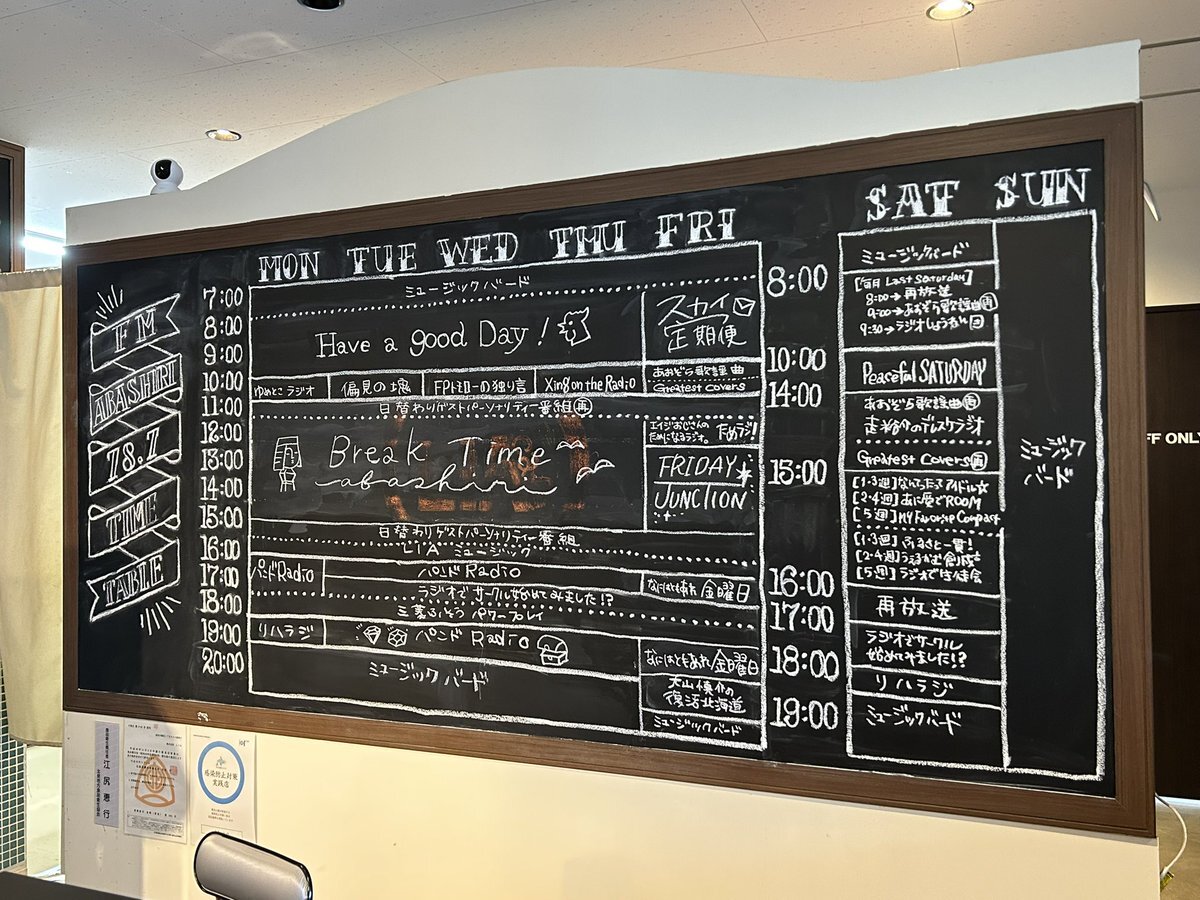 FM
ABASHIRI
78.7
TIME
TABLE
MON TUE WED THU FRI
7:00
8:00
9:00
10:00
11:00
12:00
13:00
14:00
15:00
16:00
17:00
18:00
19:00
20:00
ミュージックバード
Have a good Day!
スカイ
定期便
ゆめとこラジオ
偏見の塊
FPヒモローの独り言
Xing on the Radio
あおぞら歌謡曲
Greatest Covers
日替わりゲストパーソナリティー番組再
Break Time
abashiri
エイジおじさんの
ためになるラジオ。ためラジ!
FRIDAY
JUNCTION
日替わりゲストパーソナリティー番組
"LIA"ミュージック
パンドRadio
パンドRadio
なにはともあれ金曜日
ラジオでサークル始めてみました!?
三葉ふどうパワープレイ
リハラジ
パンドRadio
なにはともあれ金曜日
ミュージックバード
大山慎介の
復活北海道
ミュージックバード
SAT SUN
8:00
10:00
14:00
15:00
16:00
17:00
18:00
19:00
ミュージックバード
[毎月Last Saturday]
8:00→再放送
9:00→あおぞら歌謡曲再
9:30→ラジオしょうねん
Peaceful SATURDAY
あおぞら歌謡曲再
Greatest Covers再
[1・3週]なんちったアイドル☆
[2・4週]あに愛でROOM
[5週]My Favorite Compact
[1・3週]ふるさと一貫!
[5週]ラジオで生徒会
再放送
ラジオでサークル
始めてみました!?
リハラジ
ミュージックバード
ミュージック
バード
FF ONLY
江尻恵行
感染防止対策
実践店